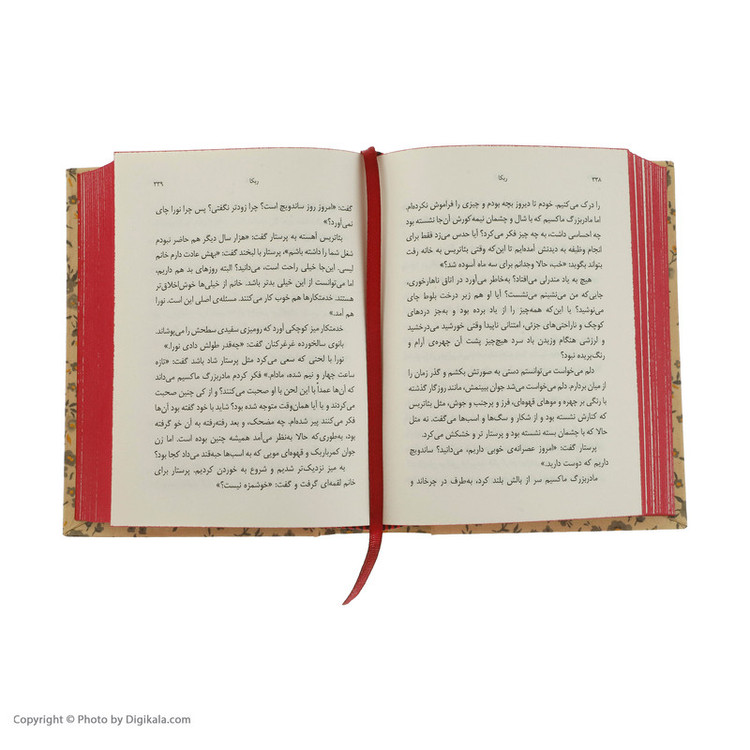 ۲۳۸
ربکا
را درک می‌کنیم. خودم تا دیروز بچه بودم و چیزی را فراموش نکرده‌ام.
اما مادربزرگ ماکسیم که با شال و چشمان نیمه‌کورش آن‌جا نشسته بود
چه احساسی داشت، به چه چیز فکر می‌کرد؟ آیا حدس می‌زد فقط برای
انجام وظیفه به دیدنش آمده‌ایم تا این‌که وقتی بئاتریس به خانه رفت
بتواند بگوید: «خب، حالا وجدانم برای سه ماه آسوده شد؟»
هیچ به یاد مندرلی می‌افتاد؟ به‌خاطر می‌آورد در اتاق ناهارخوری،
جایی‌که من می‌نشینم می‌نشست؟ آیا او هم زیر درخت بلوط چای
می‌نوشید؟ یا این‌که همه‌چیز را از یاد برده بود و به‌جز دردهای
کوچک و ناراحتی‌های جزئی، امتنانی ناپیدا وقتی خورشید می‌درخشید
و لرزشی هنگام وزیدن باد سرد هیچ‌چیز پشت آن چهره‌ی آرام و
رنگ‌پریده نبود؟
دلم می‌خواست می‌توانستم دستی به صورتش بکشم و گذر زمان را
از میان بردارم. دلم می‌خواست می‌شد جوان ببینمش، مانند روزگار گذشته
با رنگی بر چهره و موهای قهوه‌ای، فرز و پرجنب و جوش، مثل بئاتریس
که کنارش نشسته بود و از شکار و سگ‌ها و اسب‌ها می‌گفت. نه مثل
حالا که با چشمان بسته نشسته بود و پرستار تر و خشکش می‌کرد.
پرستار گفت: «امروز عصرانه‌ی خوبی داریم، می‌دانید؟ ساندویچ
داریم که دوست دارید.»
مادربزرگ ماکسیم سر از بالش بلند کرد، به‌طرف در چرخاند و
ربکا
۲۳۹
گفت: «امروز روز ساندویچ است؟ چرا زودتر نگفتی؟ پس چرا نورا چای
نمی‌آورد؟»
بئاتریس آهسته به پرستار گفت: «هزار سال دیگر هم حاضر نبودم
شغل شما را داشته باشم.» پرستار با لبخند گفت: «بهش عادت دارم خانم
لیسی. این‌جا خیلی راحت است، می‌دانید؟ البته روزهای بد هم داریم،
اما می‌توانست از این خیلی بدتر باشد. خانم از خیلی‌ها خوش‌اخلاق‌تر
هستند. خدمتکارها هم خوب کار می‌کنند. مسئله‌ی اصلی این است. نورا
هم آمد.»
خدمتکار میز کوچکی آورد که رومیزی سفیدی سطحش را می‌پوشاند.
بانوی سالخورده غرغرکنان گفت: «چه‌قدر طولش دادی نورا.»
نورا با لحنی که سعی می‌کرد مثل پرستار شاد باشد گفت: «تازه
ساعت چهار و نیم شده، مادام.» فکر کردم مادربزرگ ماکسیم می‌داند
که آن‌ها عمداً با این لحن با او صحبت می‌کنند؟ و از کی چنین صحبت
می‌کردند و یا آیا همان‌وقت متوجه شده بود؟ شاید با خود گفته بود آن‌ها
فکر می‌کنند پیر شده‌ام. چه مضحک، و بعد رفته‌رفته به آن خو گرفته
بود، به‌طوری‌که حالا به‌نظر می‌آمد همیشه چنین بوده است. اما زن
جوان کمرباریک و قهوه‌ای مویی که به اسب‌ها حبه‌قند می‌داد کجا بود؟
به میز نزدیک‌تر شدیم و شروع به خوردن کردیم. پرستار برای
خانم لقمه‌ای گرفت و گفت: «خوشمزه نیست؟»
Copyright © Photo by Digikala.com